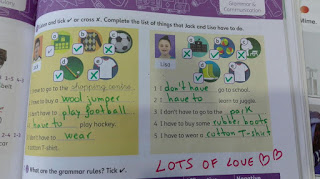 Grammar &
Communication
and tick ✓ or cross ✗. Complete the list of things that Jack and Lisa have to do.
Lisa
have to go to the shopping centre.
have to buy a wool jumper
don't have to play football
have to play hockey.
don't have to wear
cotton T-shirt.
1 I don't have to go to school.
2 I have to learn to juggle.
3 I don't have to go to the park
4 I have to buy some rubber boots
5 I have to wear a cotton T-shirt
What are the grammar rules? Tick ✓.
LOTS OF LOVE